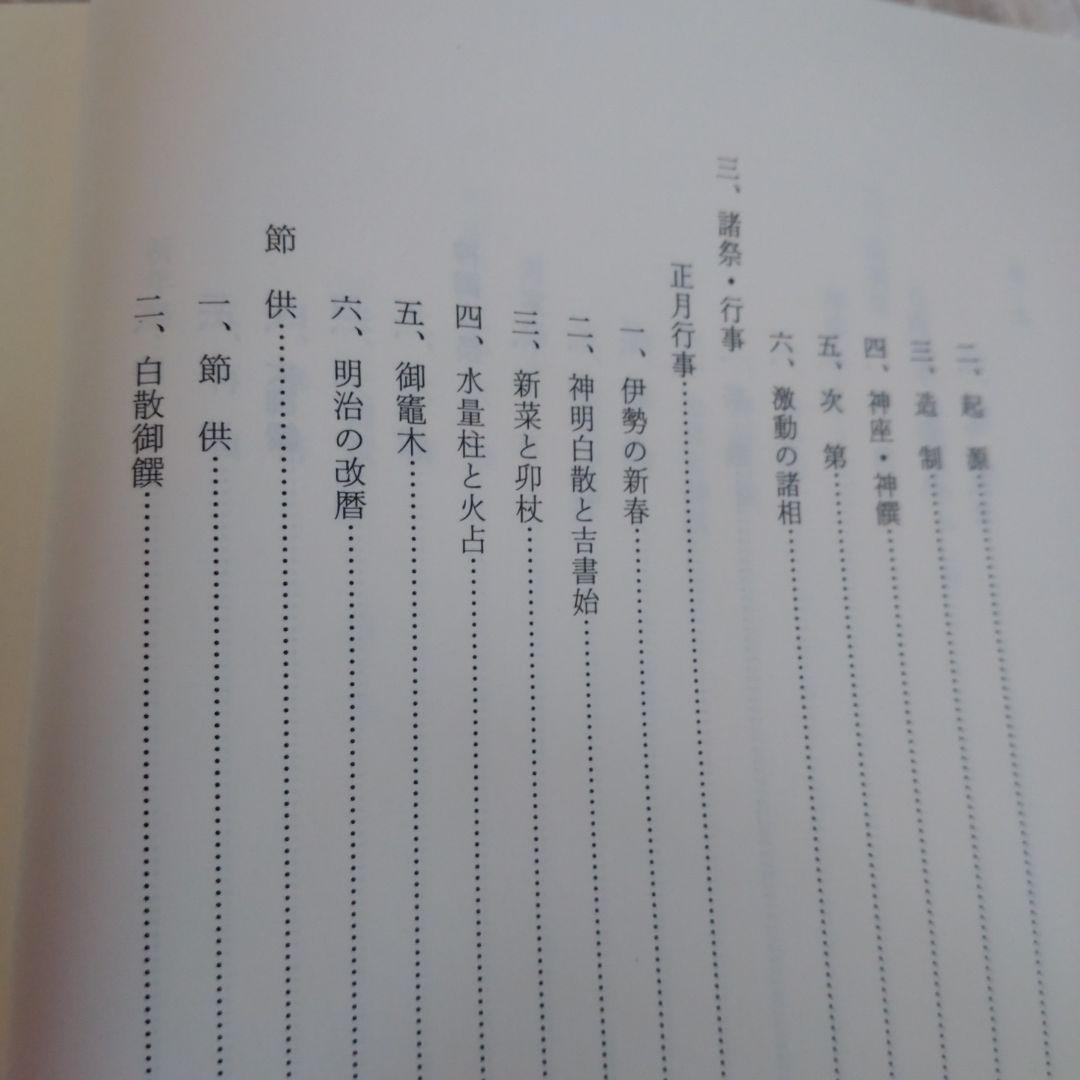 二、起　源
三、造　制
四、神座・神饌
五、次　第
六、激動の諸相
三、諸祭・行事
正月行事
一、伊勢の新春
二、神明白散と吉書始
三、新菜と卯杖
四、水量柱と火占
五、御竈木
六、明治の改暦
節　供
一、節　供
二、白散御饌